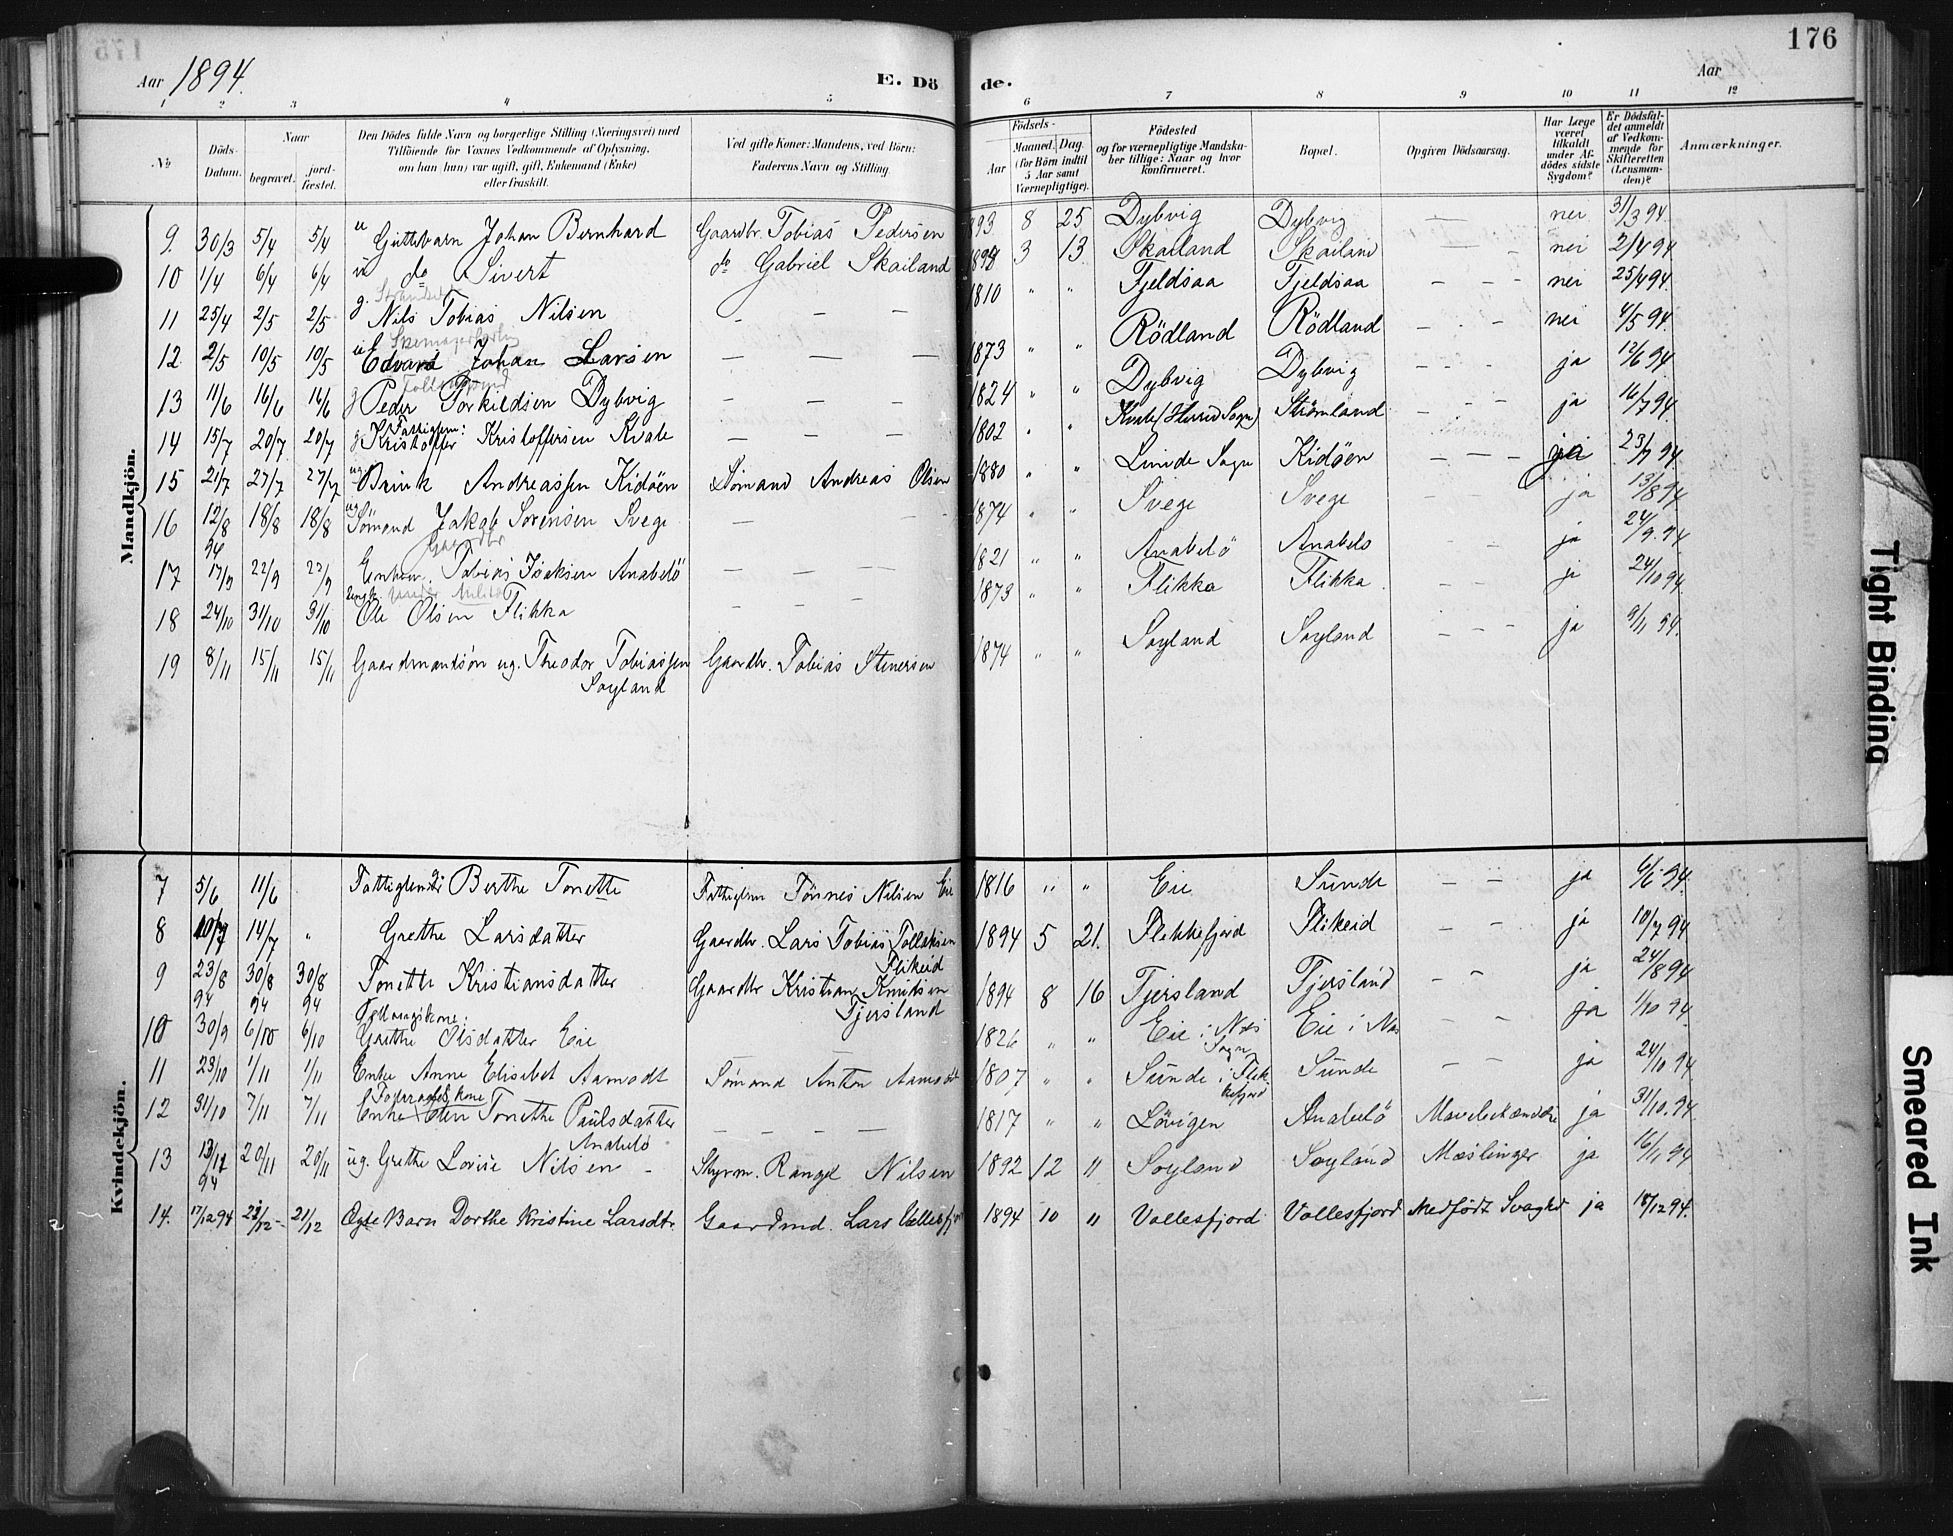 175
176
Aar 1894.
E. Dö de.
Aar
1 2 3 4 5 6 7 8 9 10 11 12
No
Döds-Datum.
Naar
begravet.
jordfæstet.
Den Dödes fulde Navn og borgerlige Stilling (Næringsvei) med
Tilföiende for Voxnes Vedkommende af Oplysning,
om han (hun) var ugift, gift, Enkemand (Enke)
eller fraskilt.
Ved gifte Koner: Mandens, ved Börn:
Faderens Navn og Stilling.
Födsels-
Aar
Maaned.
Dag
(for Börn indtil
5 Aar samt
Værnepligtige).
Födested
og for værnepligtige Mandska-
ber tillige: Naar og hvor
konfirmeret.
Bopæl.
Opgiven Dödsaarsag.
Har Læge
været
tilkaldt
under Af-
dödes sidste
Sygdom?
Er Dödsfal-
det anmeldt
af Vedkom-
mende for
Skifteretten
(Lensman-
den)?
Anmærkninger.
Mandkjön.
9 30/3 5/4 5/4 Guttebarn Johan Bernhard Gaardbr. Tobias Pedersen 93 8 25 Dybvig Dybvig — nei 31/3 94.
10 1/4 6/4 6/4 do Sivert do Gabriel Skailand 3 13 Skailand Skailand — nei 2/4 94
11 25/4 2/5 2/5 g. Nils Tobias Nilsen — — — 1810 " " Fjeldsaa Fjeldsaa — — — nei 25/4 94.
12. 2/5 10/5 10/5 Edvard Johan Larsen — — — 1873 " " Rödland Rödland — — — nei 4/5 94.
13 11/6 16/6 16/6 g Peder Torkildsen Dybvig — — — 1824 " " Dybvig Dybvig — — — ja 12/6 94
14 15/7 20/7 20/7 g Fattiglem: Kristoffer Kristoffersen Kvale — — — 1802 " " Kvale (Herred Sogn) Strömland — — — ja 16/7 94.
15 21/7 27/7 27/7 ug Brink Andreassen Kidöen Sömand Andreas Olsen 1880 " " Lunde Sogn Kidöen — — — ja 23/7 94
16 12/8 94 18/8 18/8 ug Sömand Jakob Sörensen Svege — — 1874 " " Svege Svege — — ja 13/8 94
17 17/9 22/9 22/9 Gaardbr Enkem. Tobias Anabelö — — — 1821 " " Anabelö Anabelö — — ja 24/9. 94
18 24/10 31/10 31/10 Ungk. Ole Olsen Flikka — — — 1873 " " Flikka Flikka ja 24/10 94.
19 8/11 15/11 15/11 Gaardmandsön ug. Theodor Tobiassen Gaardbr. Tobias Stenersen 1874 " " Soyland Soyland — — — ja 9/11 94.
Soyland
Kvindekjön.
7 5/6 11/6 Fattiglem Berthe Tonette Fattiglem Tönnes Nilsen Eie 1816 " " Eie Sunde — — ja 6/6 94.
8 10/7 14/7 " Grethe Larsdatter Gaardbr. Lars Tobias Tollaksen 1894 5 21. Flekkefjord Flikeid — — ja 10/7 94
Flikeid
9 23/8 94 30/8 94 30/8 94 Tonette Kristiansdatter Gaardbr Kristian Knudsen 1894 8 16 Fjersland Fjersland — — ja 24/8 94
Fjersland
10 30/9 6/10 6/10 Grethe Eie 1826 " " Eie i Næs Sogn Eie i Næs ja 1/10 94.
11 23/10 1/11 1/11 Enke Anne Elisabet Aamodt Sömand Anton Aamodt 1807 " " Sunde i Flekkefjord Sunde — — ja 24/10 94
12 31/10 7/11 7/11 Enke Elen Tonethe Paulsdatter — — — — 1817 " " Lövigen Anabelö Mavebetændelse ja 31/10. 94.
Anabelö
13 13/11 94 20/11 20/11 ug. Grethe Lovise Nilsen — Styrm. Nilsen 1892 12 " Soyland Soyland Mæslinger ja 16/11 94
14. 17/12 94 21/12 21/12 Ægte Barn Dorthe Kristine Larsdtr. Gaardmd. Lars Vollesfj 1894 10 " Vollesfjord Vollesfjord Medfödt Svaghd ja 18/12 94.
Tight Binding
Smeared Ink